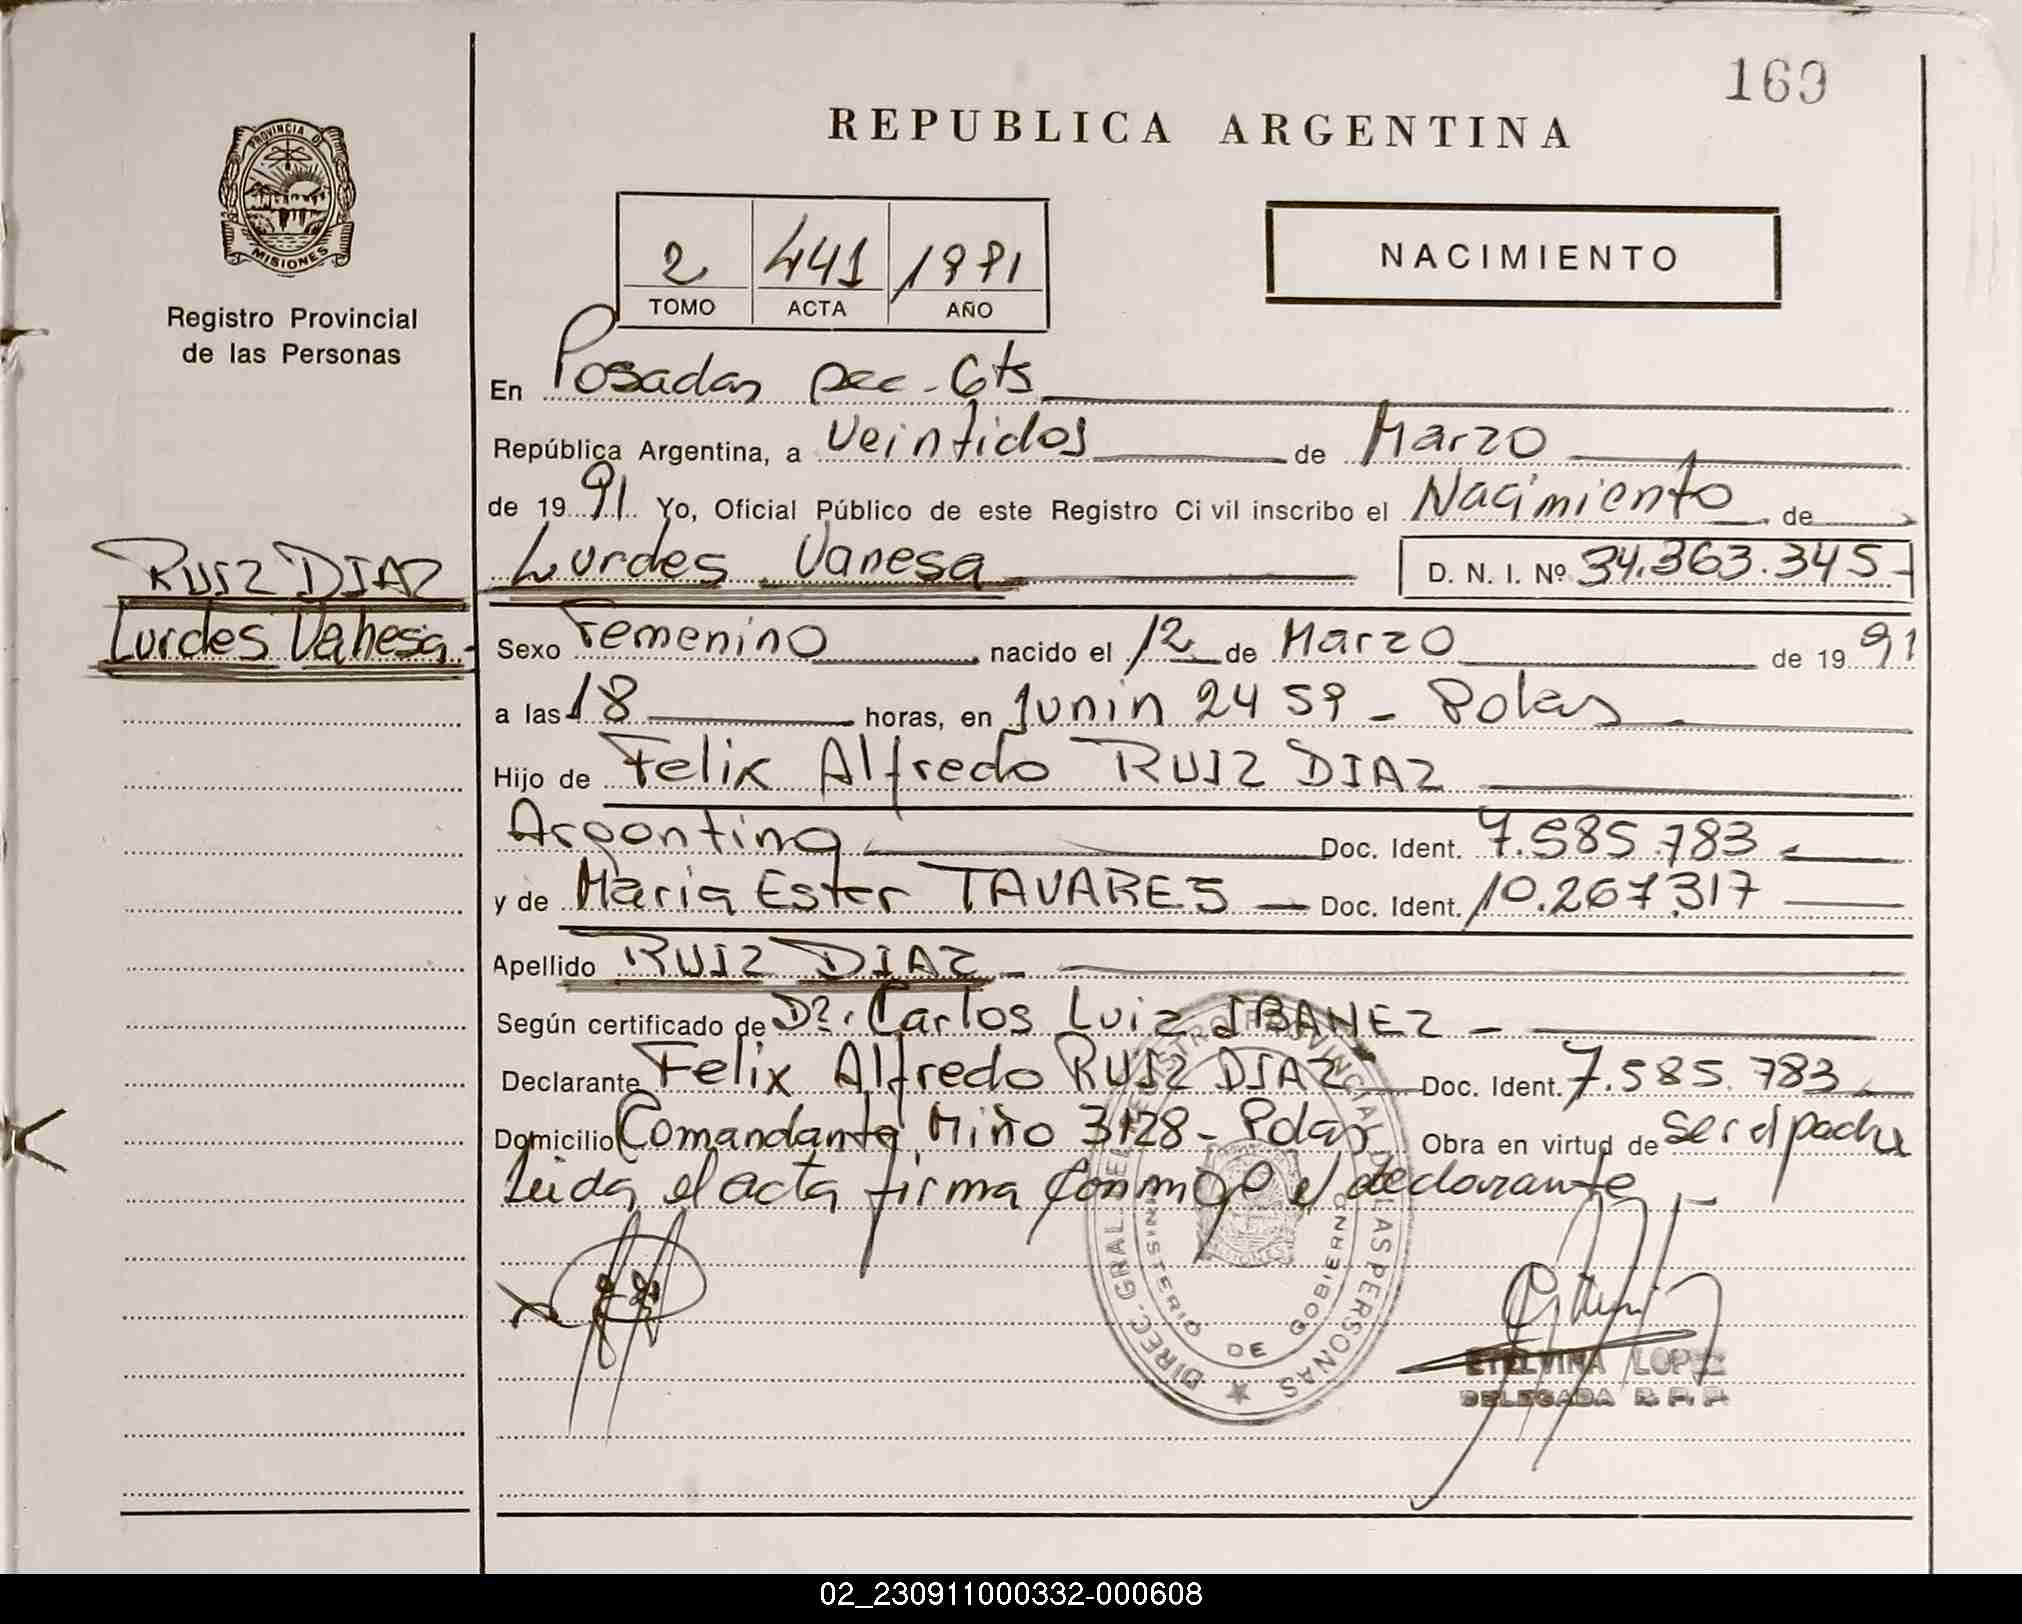 169
REPUBLICA ARGENTINA
PROVINCIA DE
MISIONES
Registro Provincial
de las Personas
2 441 1991
TOMO ACTA AÑO
NACIMIENTO
En Posadas sec. 6ts
República Argentina, a Veintidos de Marzo
de 1991 Yo, Oficial Público de este Registro Civil inscribo el Nacimiento de
RUIZ DIAZ
Lurdes Vanesa
Lurdes Vanesa D. N. I. Nº 34.363.345-
Sexo Femenino nacido el 12 de Marzo de 1991
a las 18 horas, en Junin 2459 - Pdas
Hijo de Felix Alfredo RUIZ DIAZ
Argentino Doc. Ident. 7.585.783
y de Maria Ester TAVARES - Doc. Ident. 10.267.317
Apellido RUIZ DIAZ -
Según certificado de Dr. Carlos Luiz IBAÑEZ -
Declarante Felix Alfredo RUIZ DIAZ Doc. Ident. 7.585.783
Domicilio Comandante Miño 3128 - Pdas Obra en virtud de ser el padre
Leida el acta firma conmigo el declarante
DIREC. GRAL. DEL REGISTRO PROVINCIAL DE LAS PERSONAS
MINISTERIO DE GOBIERNO
ETELVINA LOPEZ
DELEGADA R. P. P.
02_230911000332-000608